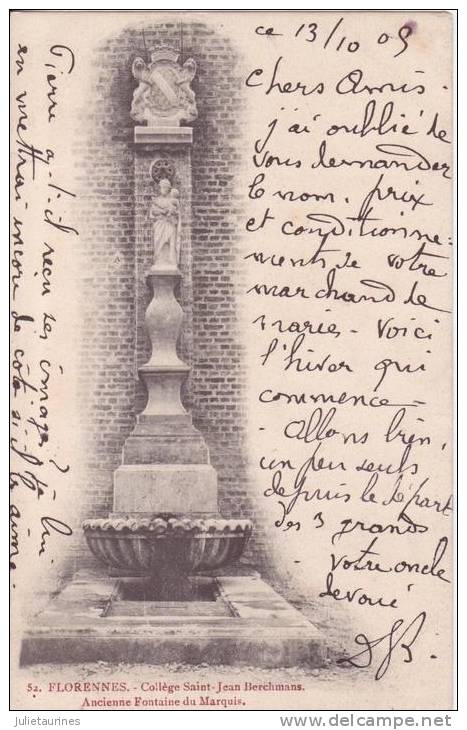 ce 13/10 05
Chers Amis.
j'ai oublié de
vous demander
le nom, prix
et conditionne-
ments de votre
marchand de
maries - Voici
l'hiver qui
commence =
- Allons bien,
un peu seuls
depuis le départ
des 3 grands
Votre oncle
dévoué
DB.
Pierre a-t-il reçu ses images? Je lui
en mettrai encore de côté s'il les aime.
52. FLORENNES. - Collège Saint-Jean Berchmans.
Ancienne Fontaine du Marquis.
julietaurines
http://www.delcampe.net